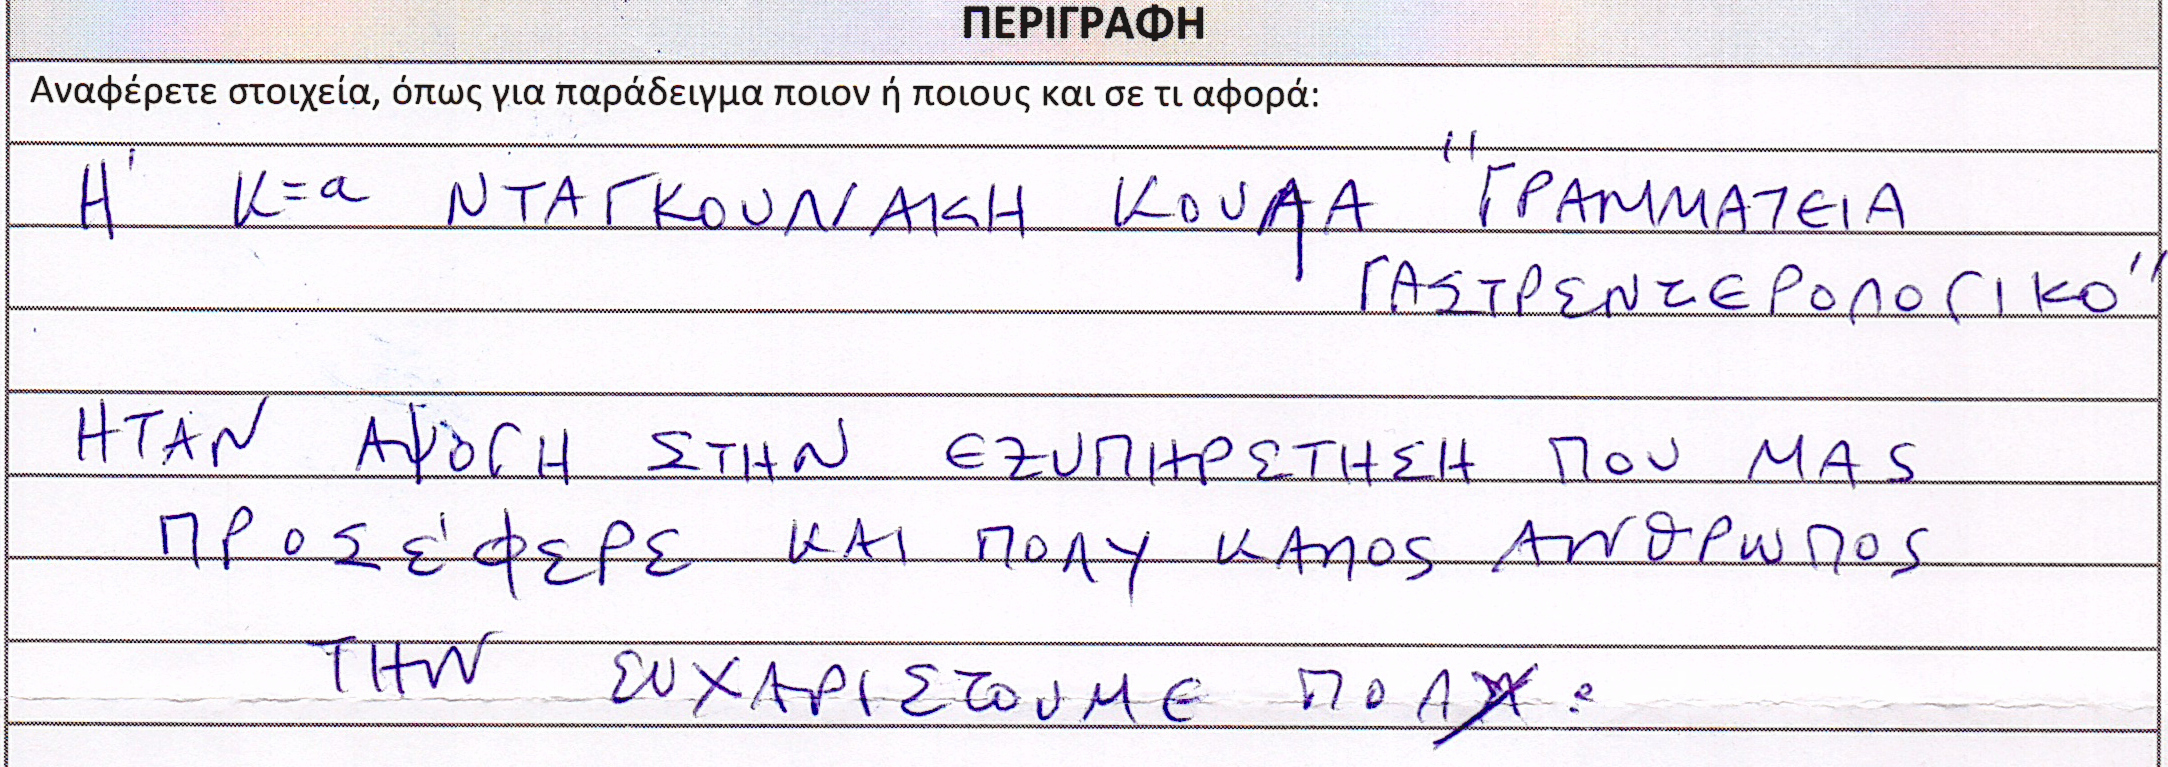 ΠΕΡΙΓΡΑΦΗ
Αναφέρετε στοιχεία, όπως για παράδειγμα ποιον ή ποιους και σε τι αφορά:
Η' Κ=α ΝΤΑΓΚΟΥΝΑΚΗ "ΓΡΑΜΜΑΤΕΙΑ
ΓΑΣΤΡΕΝΤΕΡΟΛΟΓΙΚΟ"
ΗΤΑΝ ΑΨΟΓΗ ΣΤΗΝ ΕΞΥΠΗΡΕΤΗΣΗ ΠΟΥ ΜΑΣ
ΠΡΟΣΕ'ΦΕΡΕ ΚΑΙ ΠΟΛΥ ΚΑΛΟΣ ΑΝΘΡΩΠΟΣ
ΤΗΝ ΕΥΧΑΡΙΣΤΟΥΜΕ ΠΟΛΥ.